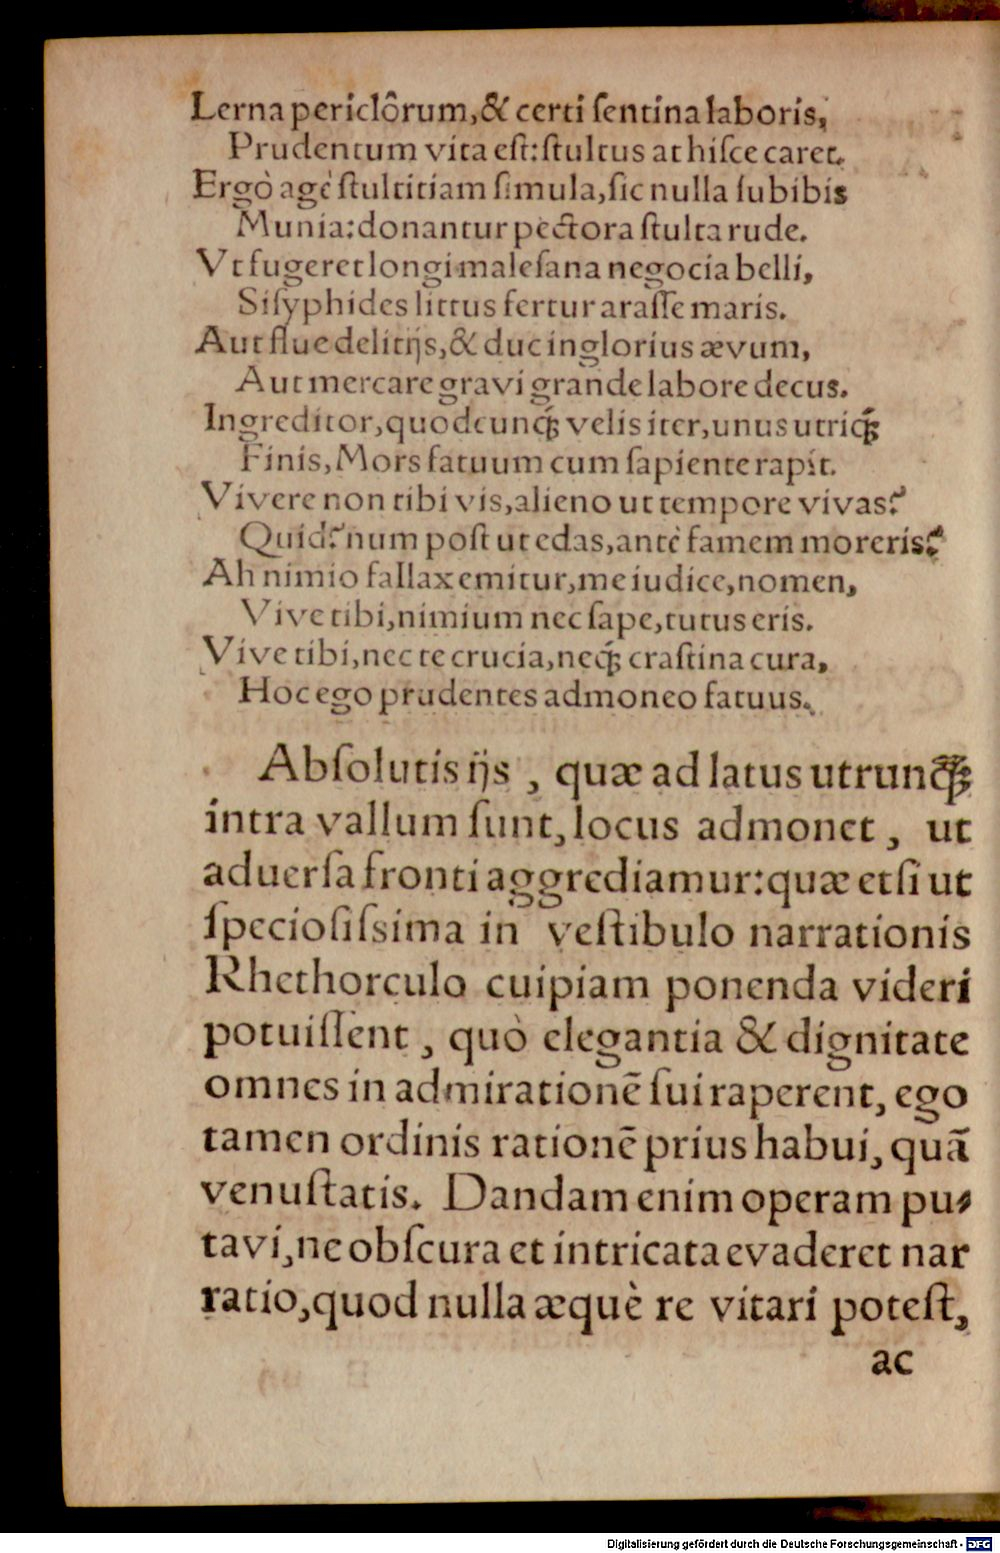 Lerna periclôrum, & certi ſentina laboris,
Prudentum vita eſt: ſtultus at hiſce caret.
Ergò agè ſtultitiam ſimula, ſic nulla ſubibis
Munia: donantur pectora ſtulta rude.
Vt fugeret longi maleſana negocia belli,
Siſyphides littus fertur araſſe maris.
Aut flue delitijs, & duc inglorius ævum,
Aut mercare gravi grande labore decus.
Ingreditor, quodcunq́; velis iter, unus utriq́;
Finis, Mors fatuum cum ſapiente rapit.
Vivere non tibi vis, alieno ut tempore vivas?
Quid? num poſt ut edas, antè famem moreris?
Ah nimio fallax emitur, me iudice, nomen,
Vive tibi, nimium nec ſape, tutus eris.
Vive tibi, nec te crucia, neq́; craſtina cura,
Hoc ego prudentes admoneo fatuus.
Abſolutis ijs, quæ ad latus utrunq́;
intra vallum ſunt, locus admonet, ut
aduerſa fronti aggrediamur: quæ etſi ut
ſpecioſiſsima in veſtibulo narrationis
Rhethorculo cuipiam ponenda videri
potuiſſent, quò elegantia & dignitate
omnes in admirationẽ ſui raperent, ego
tamen ordinis rationẽ prius habui, quã
venuſtatis. Dandam enim operam pu⸗
tavi, ne obſcura et intricata evaderet nar
ratio, quod nulla æquè re vitari poteſt,
ac
Digitalisierung gefördert durch die Deutsche Forschungsgemeinschaft - DFG